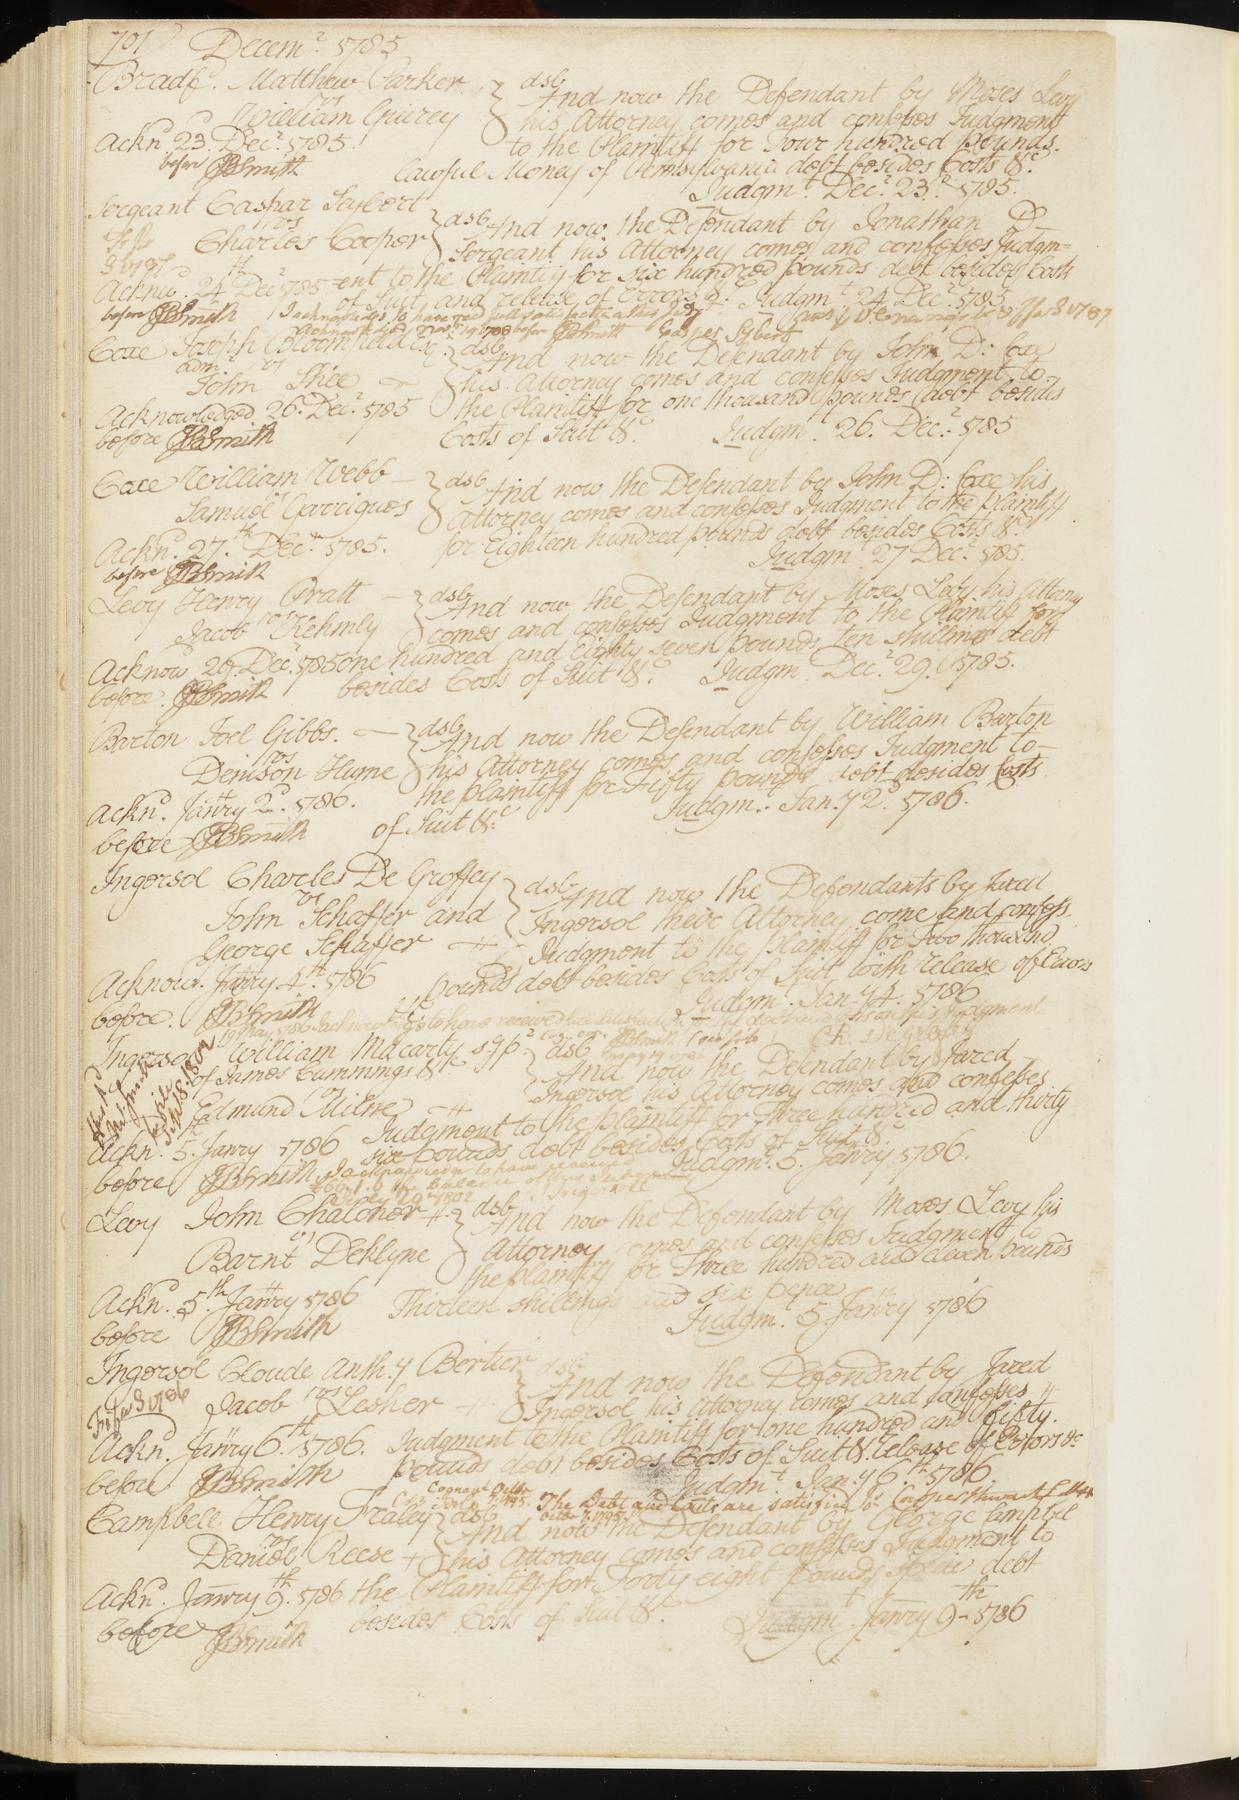 701 Decemr. 1785
Bradf. Matthew Parker } dsb And now the Defendant by Moses Levy
vs
William Guirey his Attorney comes and confesses Judgment
Ackn. 23d Decr. 1785. to the Plaintiff for Four hundred Pounds.
before JBSmith Lawful Money of Pennsylvania debt besides Costs &c
Judgmt. Decr. 23d. 1785.
Sergeant Caspar Seybert } dsb And now the Defendant by Jonathan D–
vs
Charles Cooper Sergeant his Attorney comes and confesses Judgm=
Ackn. 24th Decr 1785 =ent to the Plaintiff for six hundred pounds debt besides Costs
of Suit and release of Errors &c. Judgmt 24 Decr. 1785
before JBSmith I acknowledge to have recd full satisfaction
before JBSmith Casper Sybert
Coxe Joseph Bloomfield Esq } dsb And now the Defendant by John D: Coxe
adm vs
John Shee his Attorney comes and confesses Judgment to–
Acknowledged 26. Decr. 1785 the Plaintiff for one thousand pounds debt besides
before JBSmith Costs of Suit &c. Judgmt. 26. Decr. 1785
Coxe William Webb – } dsb And now the Defendant by John D: Coxe his
vs
Samuel Garrigues Attorney comes and confesses Judgment to the Plaintiff
Ackn. 27th Decr. 1785. for Eighteen hundred pounds debt besides Costs &c
before JBSmith Judgmt 27 Decr 1785.
Levy Henry Pratt – } dsb And now the Defendant by Moses Levy his Attorny
vs
Jacob Kehmly comes and confesses Judgment to the Plaintiff for
Acknow 29. Decr. 1785 one hundred and Eighty seven pounds ten shillings debt
before JBSmith besides Costs of Suit &c. Judgm. Decr 29. 1785.
Barton Joel Gibbs. – } dsb And now the Defendant by William Barton
vs
Denison Hume his Attorney comes and confesses Judgment to–
Acknd. Janry 2d. 1786. the Plaintiff for Fifty pounds debt besides Costs
before JBSmith of Suit &c Judgm. Jan.y 2d. 1786.
Ingersol Charles De Groffey } dsb And now the Defendants by Jared
vs
John Schaffer and Ingersol their Attorney come and confess
George Schaffer Judgment to the Plaintiff for Two thousand
Acknow. Janry 4th. 1786 Pounds debt besides Costs of Suit with release of Errors
before. JBSmith Judgmt. Jan.y 4. 1786
Ingersol William Macarty } dsb And now the Defendant by Jared
of James Cummings &c
vs Ingersol his Attorney comes and confesses
Edmund Milne Judgment to the Plaintiff for Three hundred and thirty
Ackn. 5th Janry 1786 six Pounds debt besides Costs of Suit &c
before JBSmith Judgmt. 5. Janry 1786.
I acknowledge to have received
the balance of this Judgment
1802 J Ingersoll
Levy John Chaloner } dsb And now the Defendant by Moses Levy his
vs
Barnt DeKlyne Attorney comes and confesses Judgment to
the Plaintiff for Three hundred and eleven pounds
Acknd. 5th. Janry 1786 Thirteen shillings and six pence
before JBSmith Judgm. 5 Janry 1786
Ingersol Cloude Anth.y Bertier } dsb And now the Defendant by Jared
vs
Jacob Lesher Ingersol his Attorney comes and confesses
Ackn. Janry 6th. 1786. Judgment to the Plaintiff for one hundred and fifty.
before JBSmith Pounds debt besides Costs of Suit &c release of Errors &c
Judgmt Jan.y 6th 1786.
The Debt and Costs are satisfied
Octbr 7. 1795.
Campbell Henry Fraley } dsb And now the Defendant by George Campbel
vs
Daniel Reese his Attorney comes and confesses Judgment to
Acknd. Janry 9th. 1786 the Plaintiff for Forty eight pounds debt
before JBSmith besides Costs of Suit &c. Judgmt Janry 9th 1786